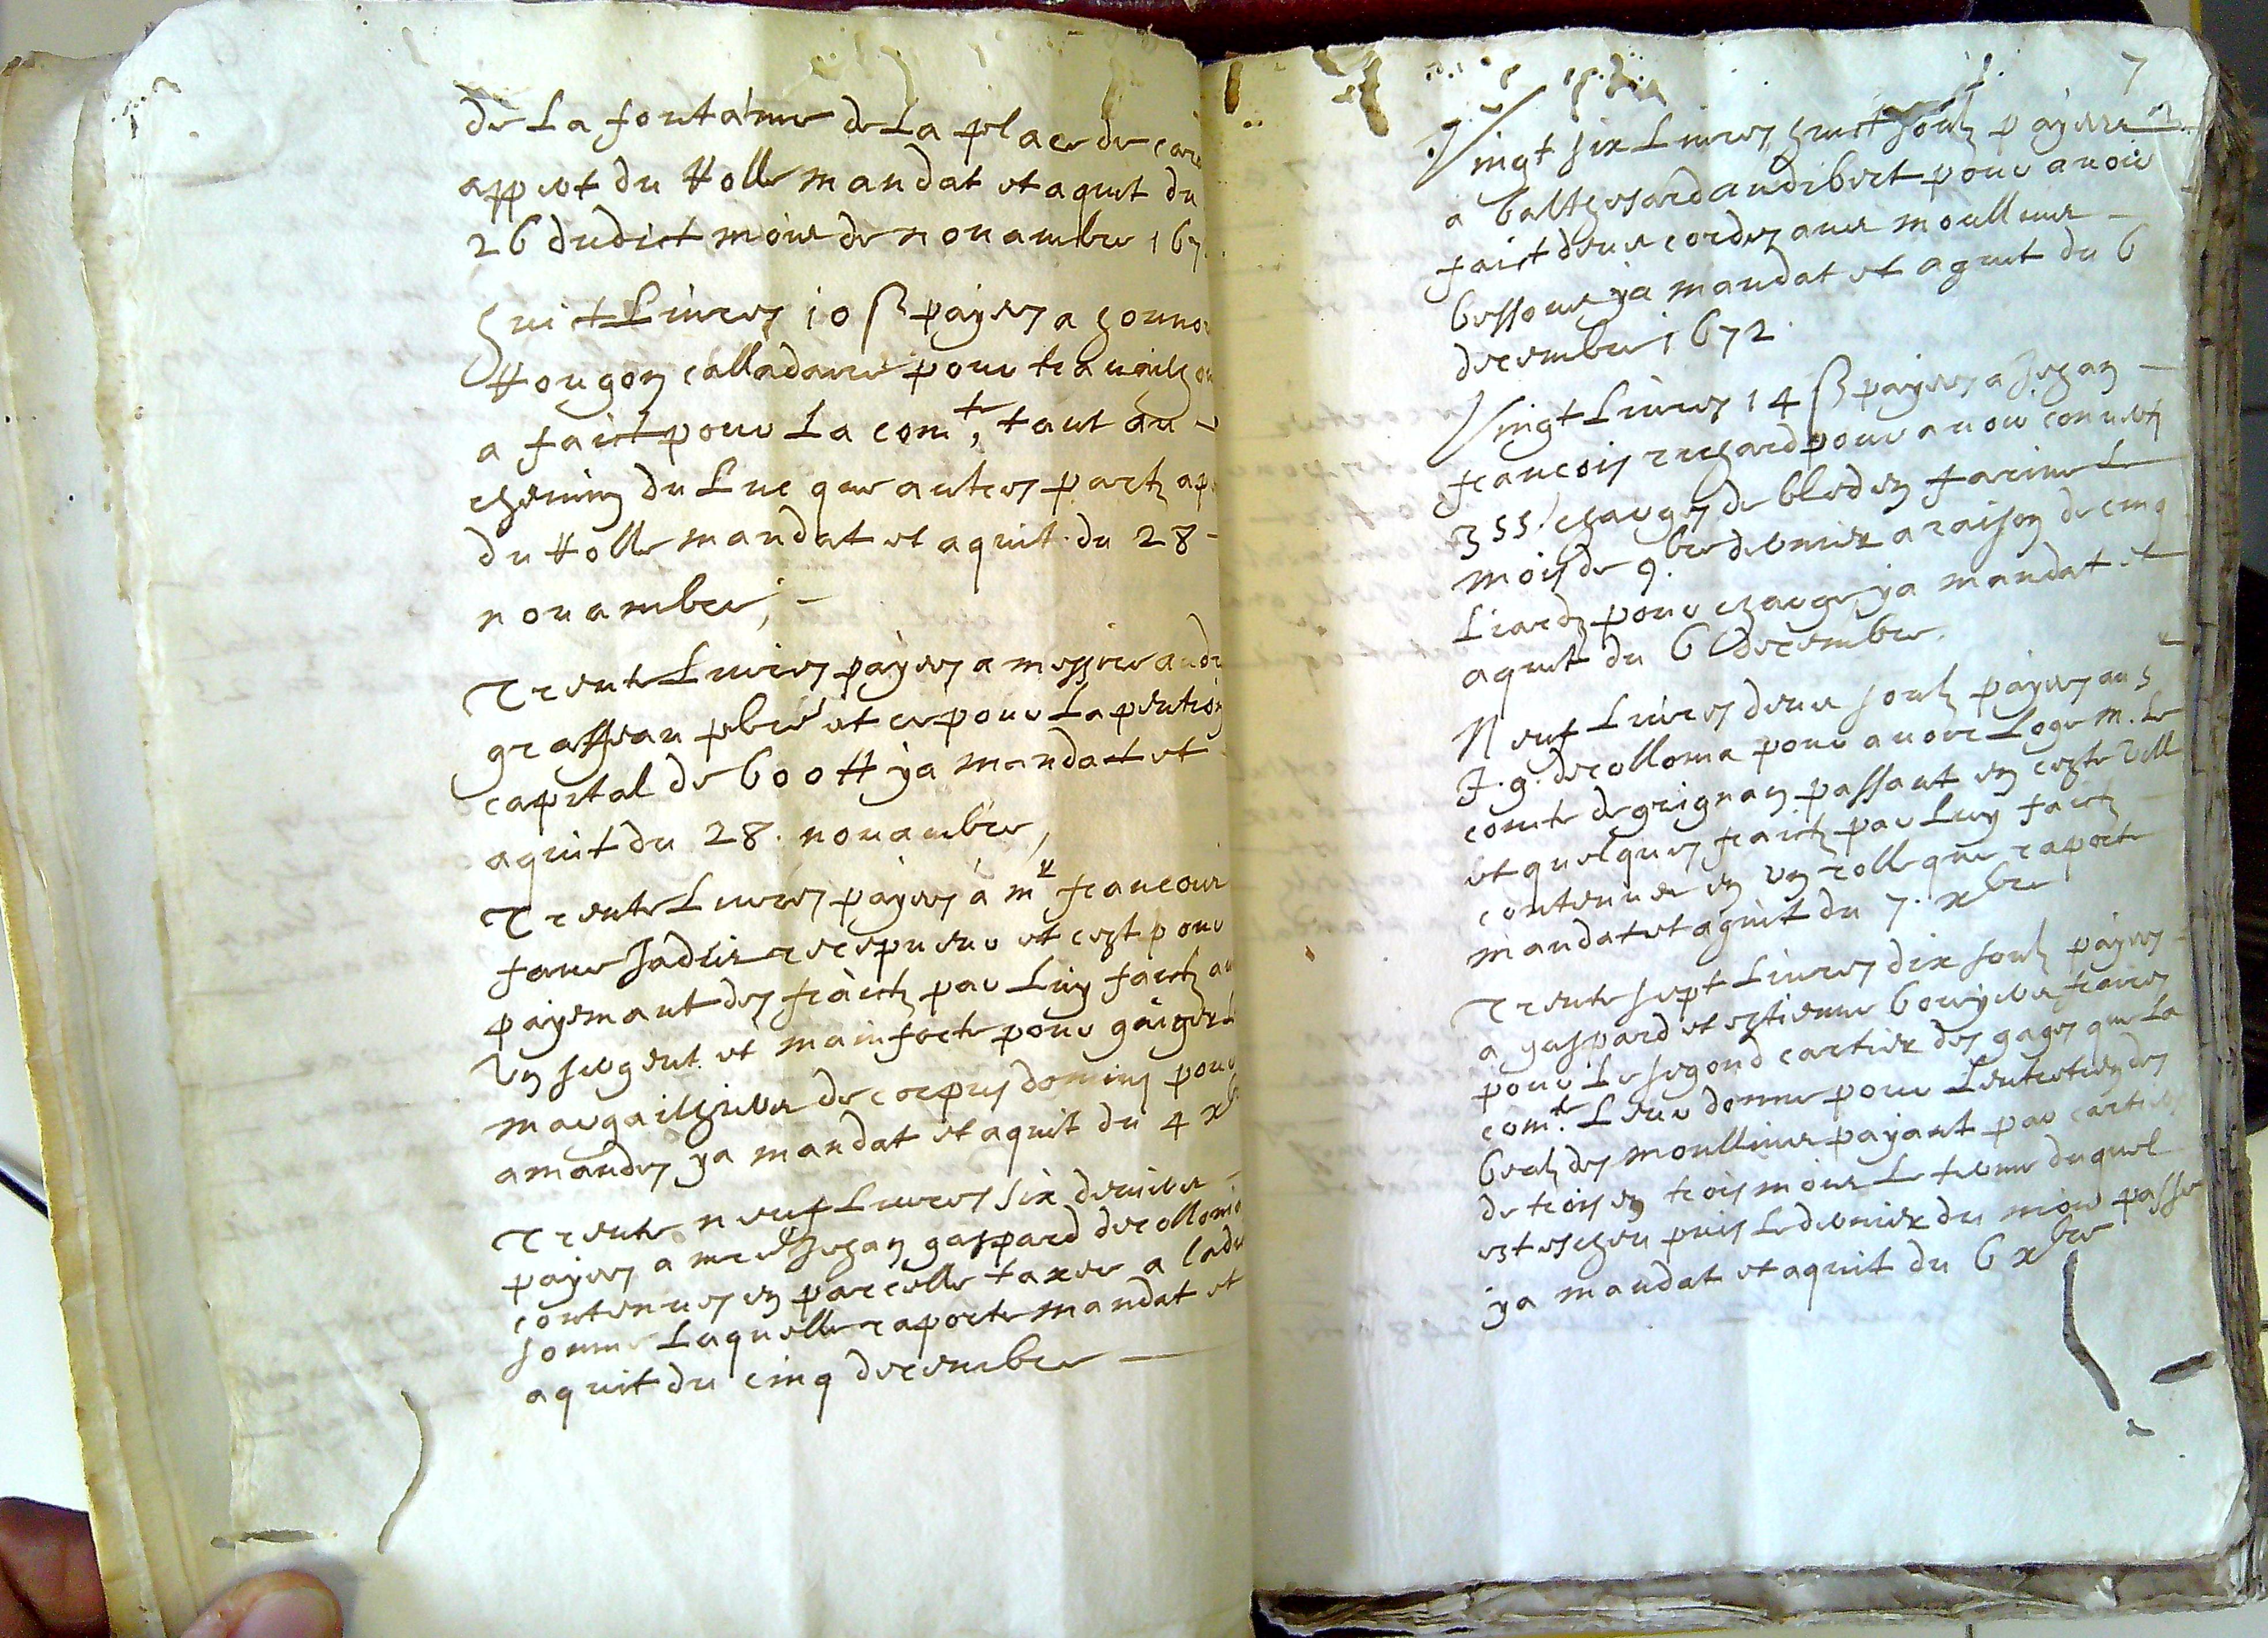 de La fontaine de La place de
appert du Rolle mandat et aquit du
26 dudict mois de novambre 167
Huict Livres 10 ß payes a honno
Rougon calladaire pour travailh
a faict pour La com.te, tant au
chemin du Luc que autres partz
du Rolle mandat et aquit du 28
novambre,
Trente Livres payes a messire andr
graffeau pbre et ce pour La pention
capital de 600 tt ya mandat et
aquit du 28. novambre,
Trente Livres payes a mr francois
faur Jadis recepveur et cest pour
payemant des fraictz par Luy faictz
Un sergent et main forte pour gaiger
margailhiers de corpus domini pour
amandes ya mandat et aquit du 4 xb
Trente neuf Livres six deniers
payes a me Jehan gaspard decollonia
contenues en parcelle taxee a lad
somme Laquelle raporte mandat et
aquit du cinq decembre
7
Vingt six Livres huict soulz payees
a balthesard audibert pour avoir
faict deux cordes aux moullins
bessons ya mandat et aquit du 6
decembre 1672.
Vingt Livres 14 ß payes a Jehan
francois richard pour avoir convertz
355 charges de bled en farine Le
mois de 9.bre dernier a raison de cinq
Liardz pour charge ya mandat et
aquit du 6 decembre.
Neuf Livres deux soulz payes au sr
J. g. decollonia pour avoir Loge m. Le
comte de grignan passant en ceste Ville
et quelques fraictz par Luy faictz
contenues en un rolle que raporte
mandat et aquit du 7. xbre
Trente sept Livres dix soulz payes
a gaspard et estienne boyers freres
pour Le segond cartier des gages que La
com.te Leur donne pour Lentretien des
bealz des moullins payant par cartier
de trois en trois mois Le terme duquel
est escheu puis Le dernier du mois passe
ya mandat et aquit du 6 xbre